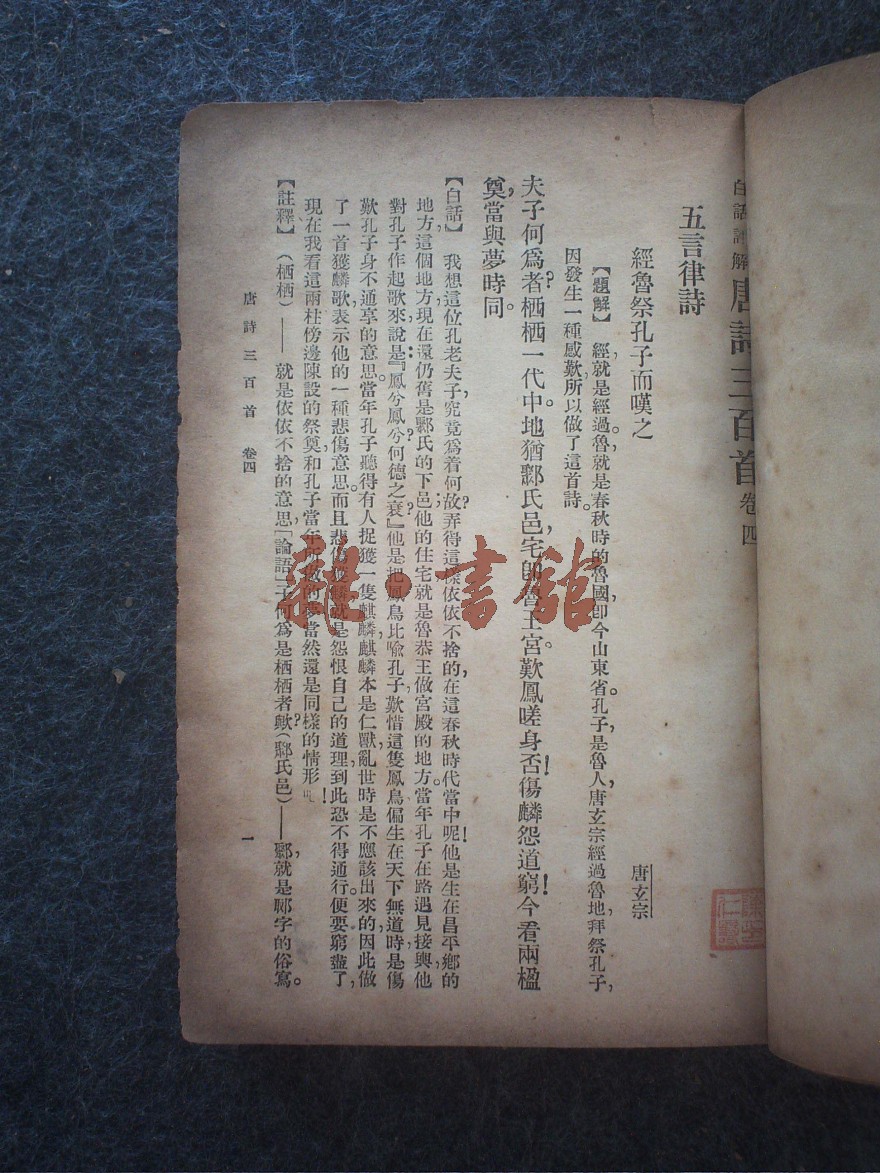 白話註解唐詩三百首卷四
五言律詩
經魯祭孔子而嘆之 唐玄宗
【題解】 經就是經過，魯就是春秋時的魯國，卽今山東省。孔子是魯人，唐玄宗經過魯地，拜祭孔子，
因發生一種感歎，所以做了這首詩。
夫子何爲者？栖栖一代中。地猶鄹氏邑，宅卽魯王宮。歎鳳嗟身否！傷麟怨道窮！今看兩楹
奠，當與夢時同。
【白話】 我想這位孔老夫子，究竟爲着何故，弄得這樣依依不捨的，在這春秋時代當中呢！他是生在昌平鄉的
地方，這個地方，現在還仍舊是鄹氏的下邑，他的住宅，就是魯恭王做宮殿的地方。當年孔子在路遇見接輿，他
對孔子作起歌來，說是：『鳳兮鳳兮？何德之衰？』他是把鳳鳥比喻孔子，歎惜這隻鳳鳥，偏生在天下無道時，是傷
歎孔子身不通享的意思。當年孔子聽得有人捉獲一隻麒麟，麒麟本是仁獸，亂世時是不應該出來的，因此做
了一首獲麟歌，表示他的一種悲傷意思。而且悲傷獲麟，就是怨恨自己的道理，到此恐不得通行。便要窮盡了，
現在我看這兩柱傍邊陳設的祭奠，和孔子當年所做的夢，當然還是同樣的情形！
【註釋】 （栖栖）—— 就是依依不捨的意思，「論語」子何爲是栖栖者歟？（鄹氏邑）——鄹，就是郰字的俗寫。
唐詩三百首 卷四 一
雜·書館